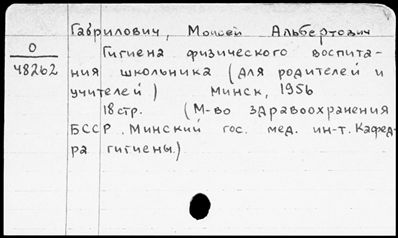 Гаврилович, Моисей Альбертович
О
48262
Гигиена физического воспита-
ния школьника (Для родителей и
учителей) Минск, 1956
18 стр. (М-во здравоохранения
БССР. Минский гос. мед. ин-т. Кафед-
ра гигиены.)